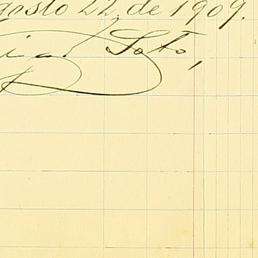 agosto 22, de 1909.
Soto,